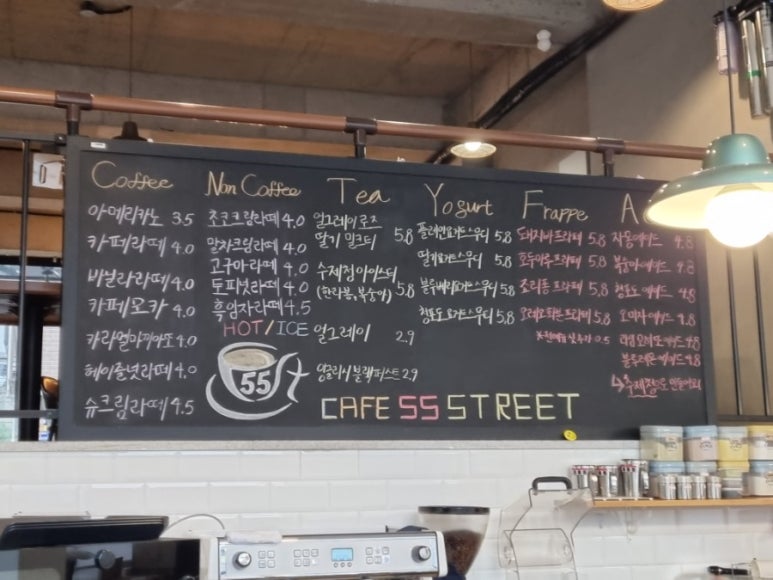 Coffee
아메리카노 3.5
카페라떼 4.0
바닐라라떼 4.0
카페모카 4.0
카라멜마끼아또 4.0
헤이즐넛라떼 4.0
슈크림라떼 4.5
Non Coffee
초코크림라떼 4.0
말차크림라떼 4.0
고구마라떼 4.0
토피넛라떼 4.0
흑임자라떼 4.5
HOT/ICE
55 St
Tea
얼그레이로즈
딸기 밀크티 5.8
수제청아이스티
(한라봉, 복숭아) 5.8
얼그레이 2.9
잉글리시 블랙퍼스트 2.9
Yogurt
플레인요거트스무디 5.8
딸기요거트스무디 5.8
블루베리요거트스무디 5.8
청포도 요거트스무디 5.8
Frappe
돼지바프라페 5.8
초리퐁 프라페 5.8
5.8
5.8
0.5
A
자몽에이드 4.8
복숭아에이드 4.8
청포도 에이드 4.8
오미자에이드 4.8
4.8
블루레몬에이드 4.8
수제청으로 만들어요!
CAFE 55 STREET